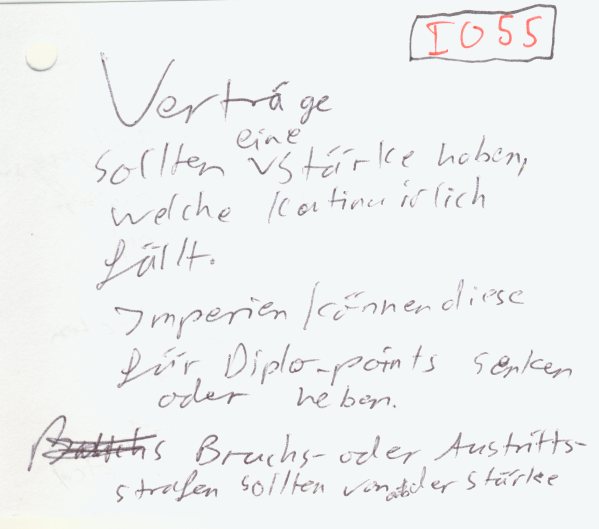 IO55
Verträge
sollten eine Stärke haben,
welche kontinuirlich
fällt.
Imperien können diese
für Diplo-points senken
oder heben.
Bruchs- oder Austritts-
strafen sollten von der Stärke